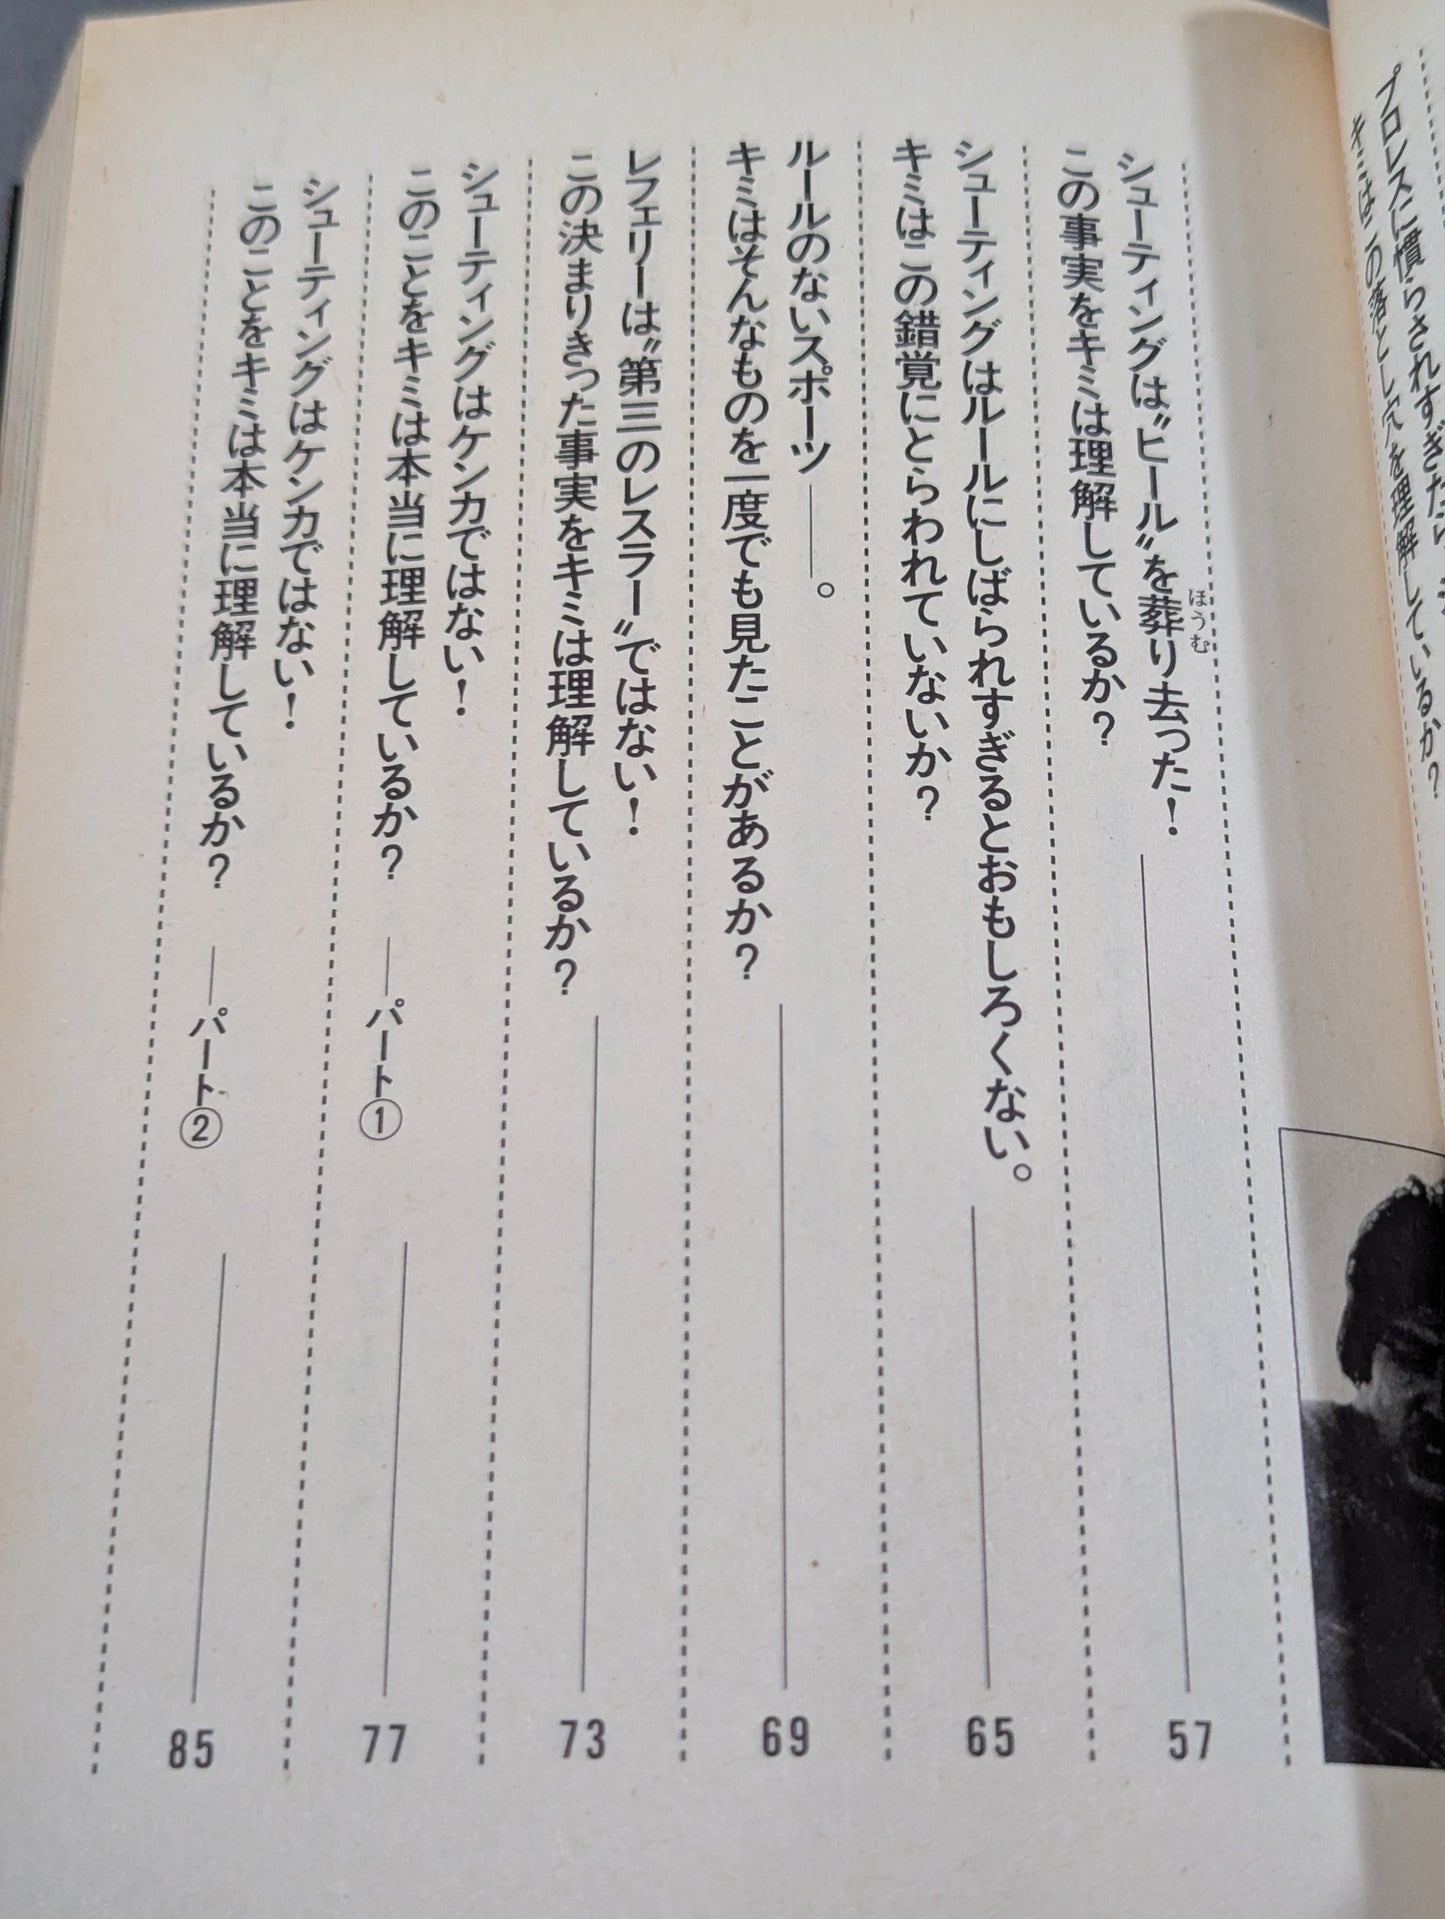 プロレスに慣らされすぎたら
キミはこの落とし穴を理解しているか？
シューティングは〝ヒール〟を葬り去った！
ほうむ
この事実をキミは理解しているか？
57
シューティングはルールにしばられすぎるとおもしろくない。
キミはこの錯覚にとらわれていないか？
65
ルールのないスポーツ――。
キミはそんなものを一度でも見たことがあるか？
69
レフェリーは〝第三のレスラー〟ではない！
この決まりきった事実をキミは理解しているか？
73
シューティングはケンカではない！
このことをキミは本当に理解しているか？ ――パート①
77
シューティングはケンカではない！
このことをキミは本当に理解しているか？ ――パート②
85